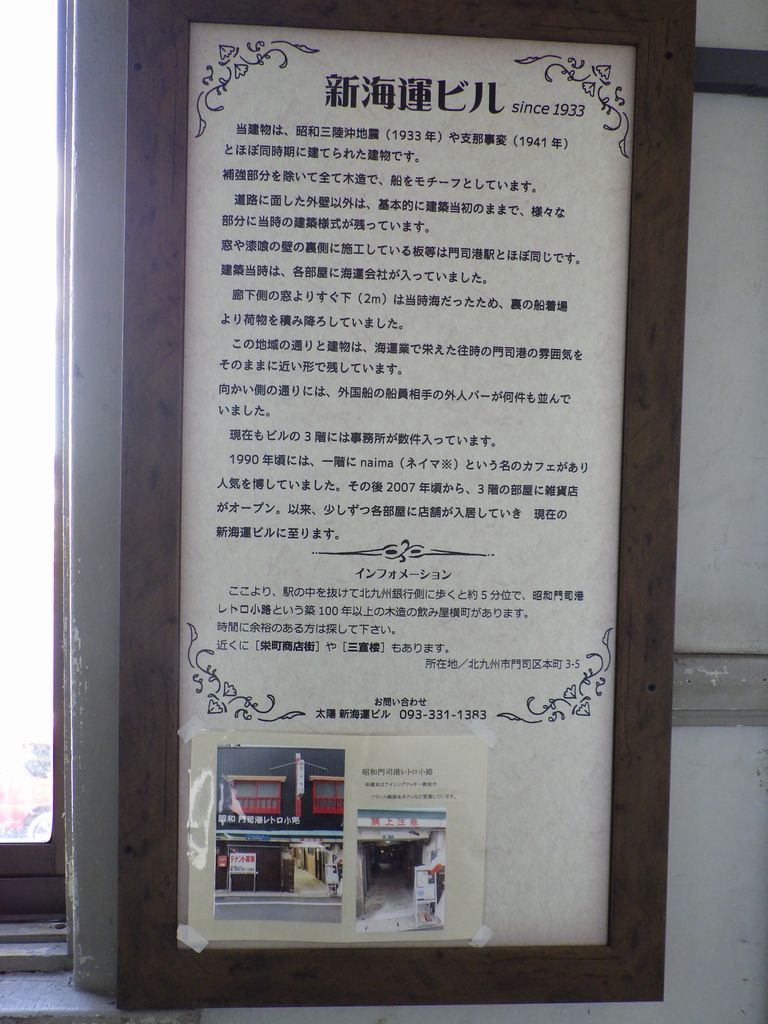 新海運ビル since 1933
当建物は、昭和三陸沖地震（1933 年）や支那事変（1941 年）
とほぼ同時期に建てられた建物です。
補強部分を除いて全て木造で、船をモチーフとしています。
道路に面した外壁以外は、基本的に建築当初のままで、様々な
部分に当時の建築様式が残っています。
窓や漆喰の壁の裏側に施工している板等は門司港駅とほぼ同じです。
建築当時は、各部屋に海運会社が入っていました。
廊下側の窓よりすぐ下（2m）は当時海だったため、裏の船着場
より荷物を積み降ろしていました。
この地域の通りと建物は、海運業で栄えた往時の門司港の雰囲気を
そのままに近い形で残しています。
向かい側の通りには、外国船の船員相手の外人バーが何件も並んで
いました。
現在もビルの 3 階には事務所が数件入っています。
1990 年頃には、一階に naima（ネイマ※）という名のカフェがあり
人気を博していました。その後 2007 年頃から、3 階の部屋に雑貨店
がオープン。以来、少しずつ各部屋に店舗が入居していき 現在の
新海運ビルに至ります。
インフォメーション
ここより、駅の中を抜けて北九州銀行側に歩くと約 5 分位で、昭和門司港
レトロ小路という築 100 年以上の木造の飲み屋横町があります。
時間に余裕のある方は探して下さい。
近くに［栄町商店街］や［三宜楼］もあります。
所在地／北九州市門司区本町 3-5
お問い合わせ
太陽 新海運ビル 093-331-1383
昭和門司港レトロ小路
昭和 門司港レトロ小路
テナント募集
頭上注意